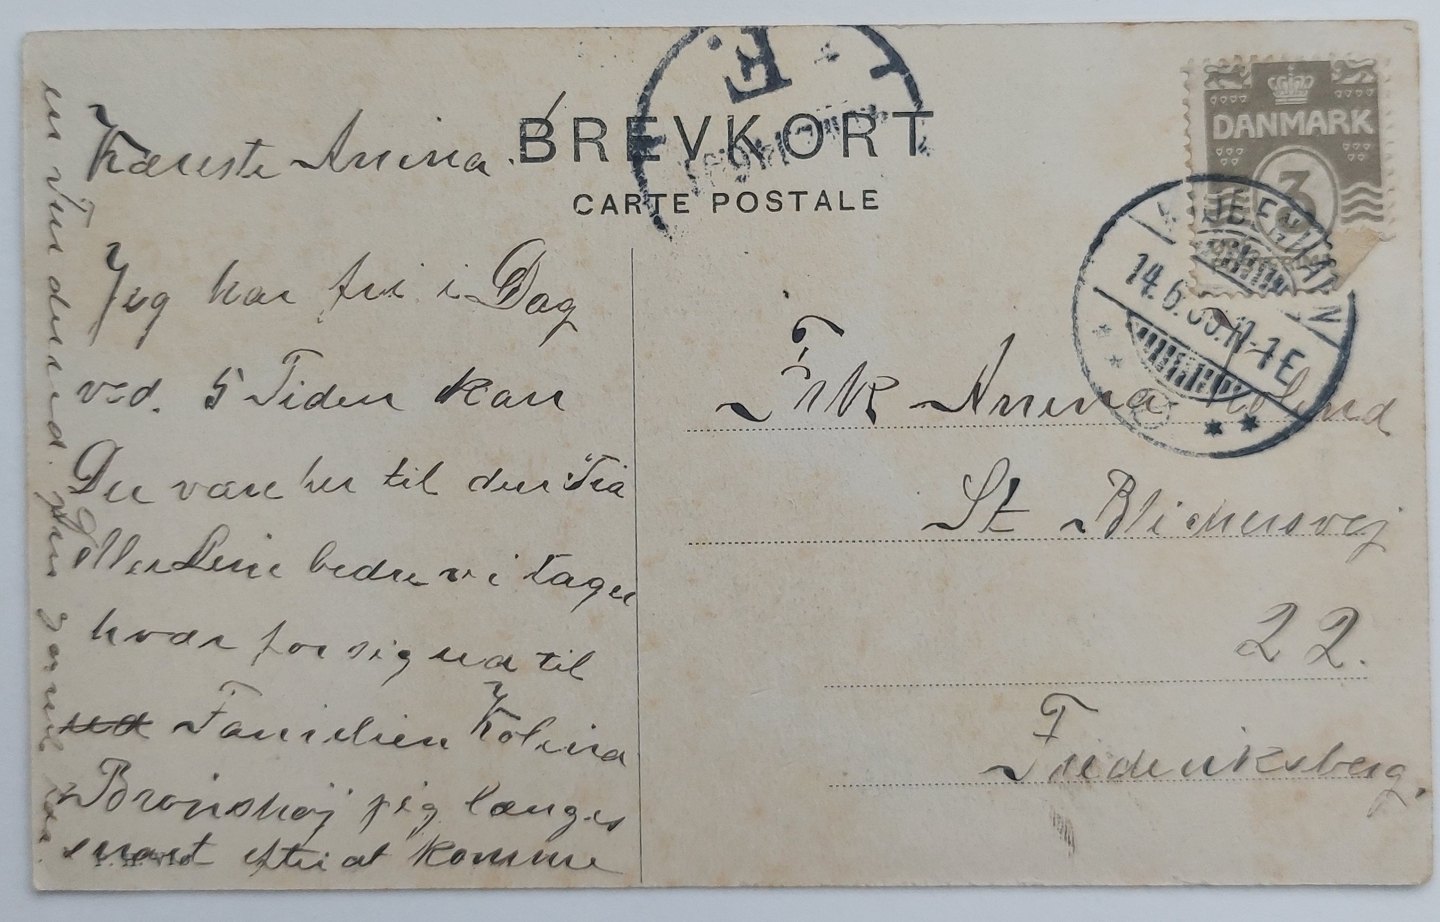 BREVKORT
CARTE POSTALE
DANMARK
3
KJØBENHAVN
14.6. 11-1E
E.
Kæreste Anina.
Jeg har fri i Dag
ved. 5 Tiden kan
Du være her til den Tid
eller bedre vi tager
hver for sig ud til
Familien Kolina
Brønshøj jeg længes
snart efter at komme
Frk Anina
St Blichersvej
22.
Frederiksberg.